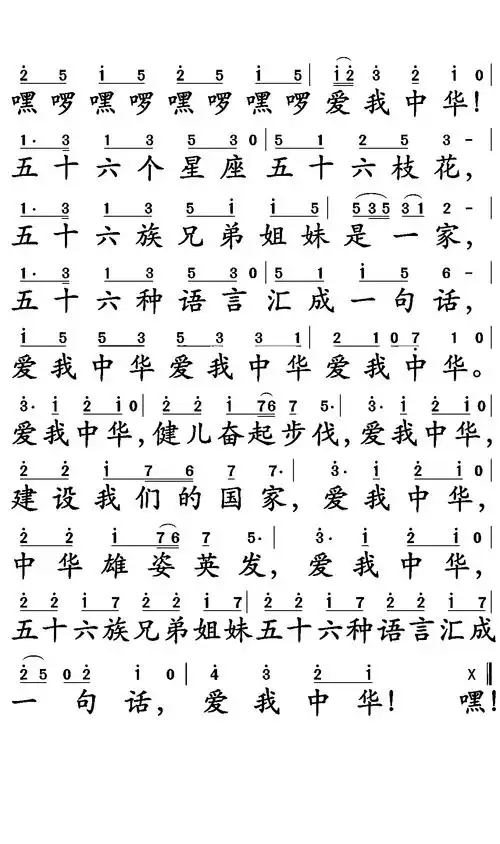 2̇ 5 1̇ 5 2̇ 5 1̇ 5 | 1̇2̇ 3̇ 2̇ 1̇ 0 |
嘿啰嘿啰嘿啰嘿啰爱我中华!
1· 3 1 3 5 3 0 | 5 1 2 5 3 - |
五十六个星座五十六枝花,
1· 3 1 3 5 1̇ 1̇ 5 | 535 31 2 - |
五十六族兄弟姐妹是一家,
1· 3 1 3 5 3 0 | 5 1 1̇ 5 6 - |
五十六种语言汇成一句话,
1̇ 5 5 3 5 3 3 1 | 2 1 0 7̣ 1 0 |
爱我中华爱我中华爱我中华。
3̇· 1̇ 2̇ 1̇ 0 | 2̇ 2̇ 1̇ 76 7 5· | 3̇· 1̇ 2̇ 1̇ 0 |
爱我中华,健儿奋起步伐,爱我中华,
2̇ 2̇ 1̇ 7 6 7 7· | 3̇· 1̇ 2̇ 1̇ 0 |
建设我们的国家,爱我中华,
2̇ 2̇ 1̇ 76 7 5· | 3̇· 1̇ 2̇ 1̇ 0 |
中华雄姿英发,爱我中华,
2̇ 2̇ 1̇ 7 2̇ 2̇ 1̇ 7 | 2̇ 2̇ 1̇ 7 2̇ 2̇ 1̇ 7 |
五十六族兄弟姐妹五十六种语言汇成
2̇ 5 0 2̇ 1̇ 0 | 4̇ 3̇ 2̇ 1̇ X ‖
一句话,爱我中华!嘿!